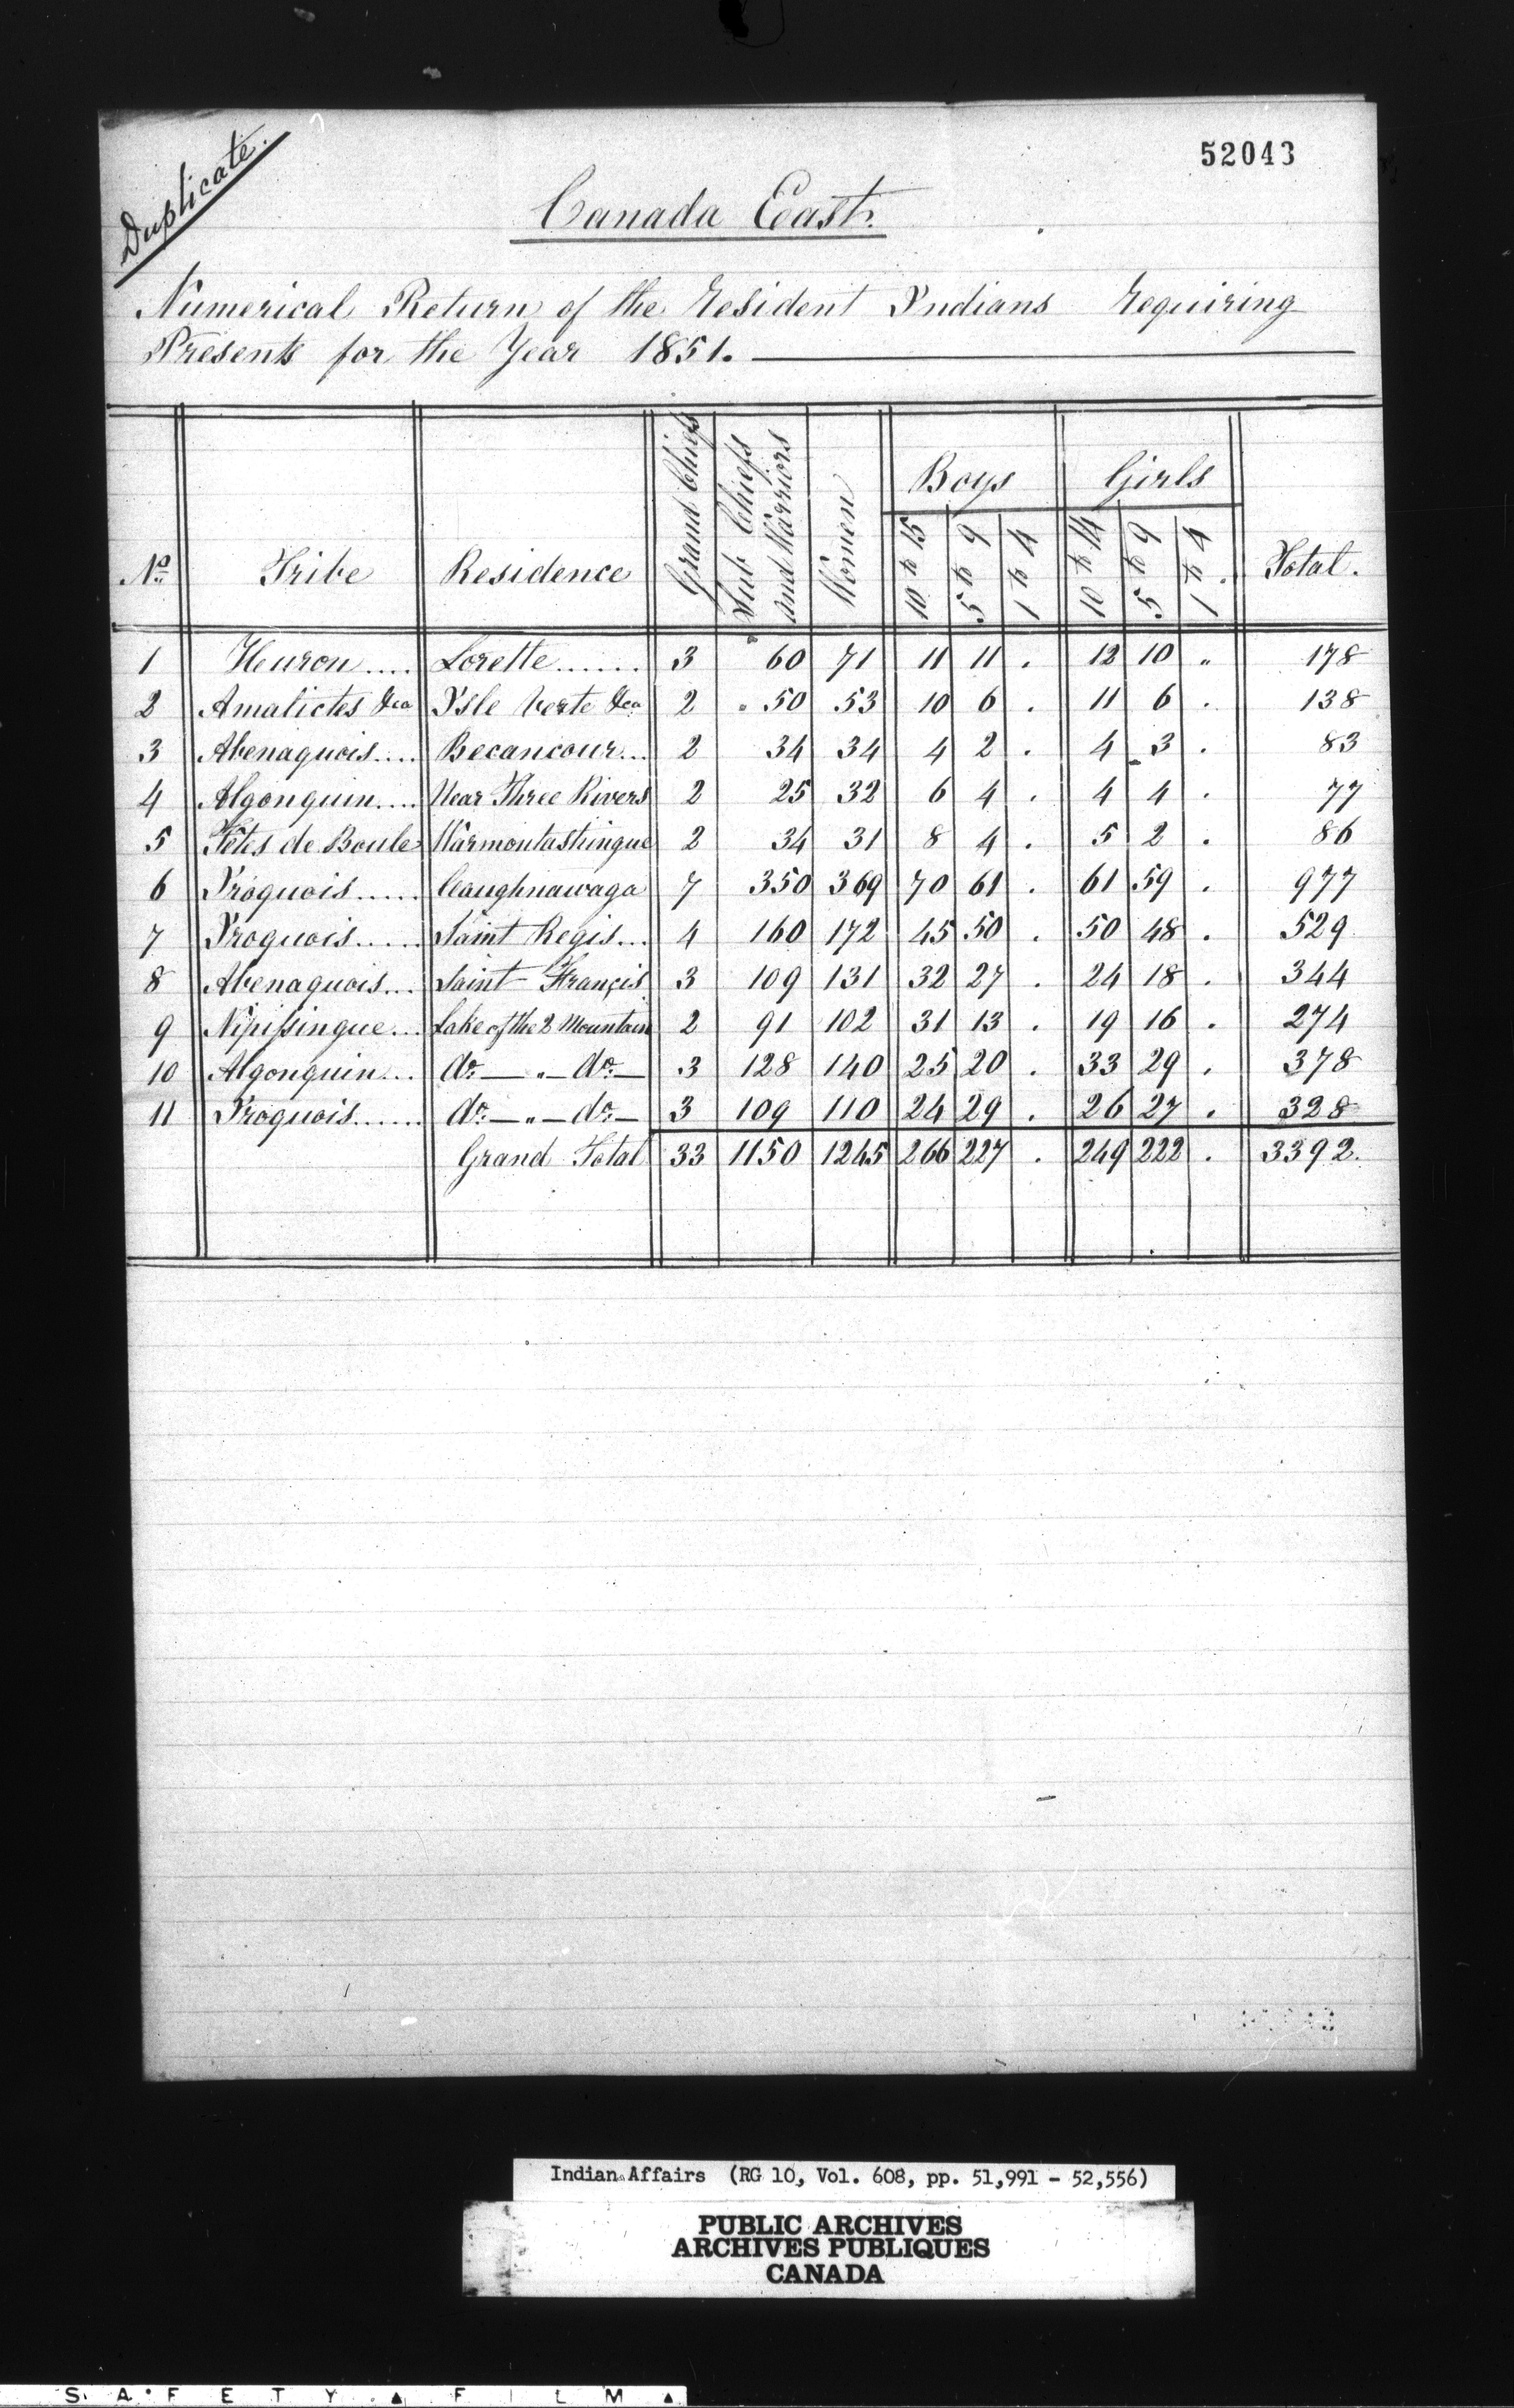 Duplicate.
52043
Canada East.
Numerical Return of the Resident Indians Requiring
Presents for the Year 1851.
No. Tribe Residence Grand Chiefs Sub Chiefs and Warriors Women Boys 10 to 15 5 to 9 1 to 4 Girls 10 to 14 5 to 9 1 to 4 Total.
1 Heuron.... Lorette...... 3 60 71 11 11 . 12 10 " 178
2 Amalictes &ca Isle Verte &ca 2 50 53 10 6 . 11 6 . 138
3 Abenaquois.... Becancour... 2 34 34 4 2 . 4 3 . 83
4 Algonquin.... Near Three Rivers 2 25 32 6 4 . 4 4 . 77
5 Têtes de Boule Warmontashingue 2 34 31 8 4 . 5 2 . 86
6 Iroquois..... Caughnawaga 7 350 369 70 61 . 61 59 . 977
7 Iroquois..... Saint Regis... 4 160 172 45 50 . 50 48 . 529
8 Abenaquois... Saint Françis 3 109 131 32 27 . 24 18 . 344
9 Nipissingue... Lake of the 2 Mountain 2 91 102 31 13 . 19 16 . 274
10 Algonquin... do. — " — do. — 3 128 140 25 20 . 33 29 . 378
11 Iroquois...... do. — " — do. — 3 109 110 24 29 . 26 27 . 328
Grand Total 33 1150 1245 266 227 . 249 222 . 3392.
Indian Affairs (RG 10, Vol. 608, pp. 51,991 - 52,556)
PUBLIC ARCHIVES
ARCHIVES PUBLIQUES
CANADA
SAFETY ▲ FILM ▲